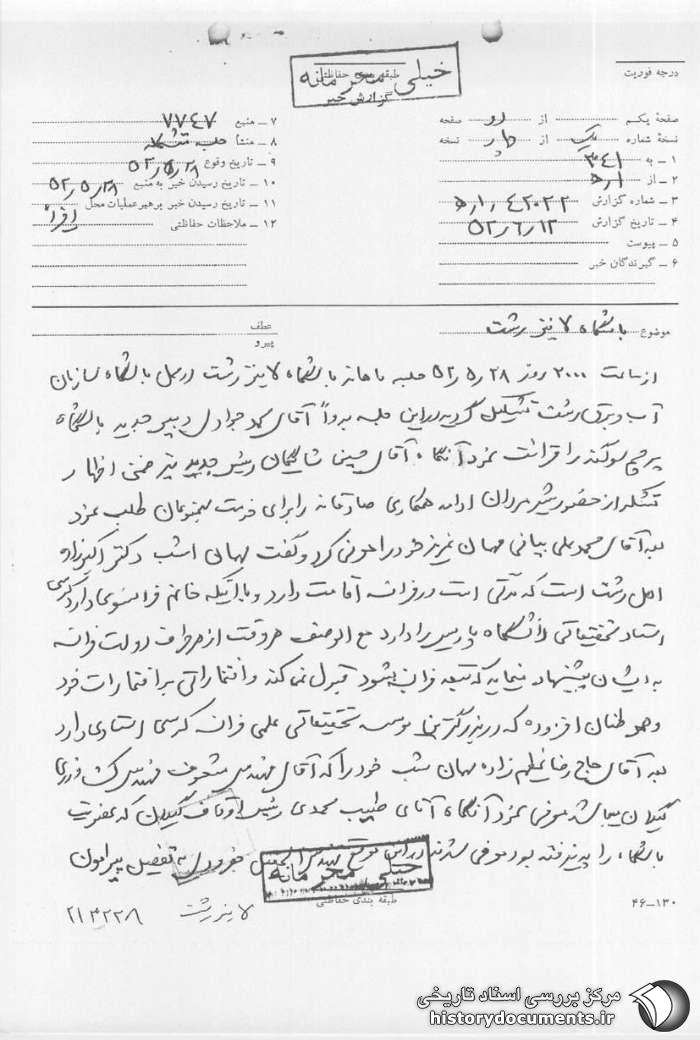 خیلی محرمانه
طبقه بندی حفاظتی
گزارش خبر
درجه فوریت
صفحه یکم از دو صفحه
نسخه شماره یک از چهار نسخه
۱ – به ۳۴۱
۲ – از ۱ر۵
۳ – شماره گزارش
۴ – تاریخ گزارش ۵۲٫۶٫۱۲
۵ – پیوست
۶ – گیرندگان خبر
۷ – منبع ۷۷۴۷
۸ – منشأ جلسه متشکله
۹ – تاریخ وقوع ۵۲٫۵٫۲۸
۱۰ – تاریخ رسیدن خبر به منبع ۵۲٫۵٫۲۸
۱۱ – تاریخ رسیدن خبر برهبر عملیات محل
۱۲ – ملاحظات حفاظتی
موضوع باشگاه لاینز رشت
عطف
پیرو
از ساعت ۲۰۰۰ روز ۲۸٫۵٫۵۲ جلسه ماهانه باشگاه لاینز رشت در محل باشگاه سازمان
آب و برق رشت تشکیل گردید در این جلسه بدواً آقای محمد جوادی دبیر جدید باشگاه
پرچم سوگند را قرائت نمود آنگاه آقای حسین رئیس جدید نیز ضمن اظهار
تشکر از حضور شیرمردان ادامه همکاری صادقانه را برای خدمت بهمنوعان طلب نمود
بعد آقای محمدعلی بیانی مهمان عزیز خود را معرفی کرد و گفت مهمان امشب دکتر اکبرزاده
اهل رشت است که مدتی است در فرانسه اقامت دارد و با آنکه خانم فرانسوی دارد کرسی
استاد تحقیقاتی دانشگاه پاریس را دارد مع الوصف هر وقت از طرف دولت فرانسه
به ایشان پیشنهاد مینماید که تبعه فرانسه شود قبول نمی کند و افتخاراتی بر افتخارات خود
و هموطنان افزوده که در بزرگترین موسسه تحقیقاتی علمی فرانسه کرسی استادی دارد
بعد آقای حاج رضا عظیم زاده مهمان شب خود را که آقای مهندس مهندس کشاورزی
گیلان میباشد معرفی نمود آنگاه آقای طبیب محمدی رئیس اوقاف گیلان که عضویت
باشگاه را پذیرفته بود معرفی شدند در این موقع به تفصیل پیرامون
خیلی محرمانه
طبقه بندی حفاظتی
۴۶–۱۳۰
لاینز رشت
۲۱۴۲۲۸
مرکز بررسی اسناد تاریخی
historydocuments.ir